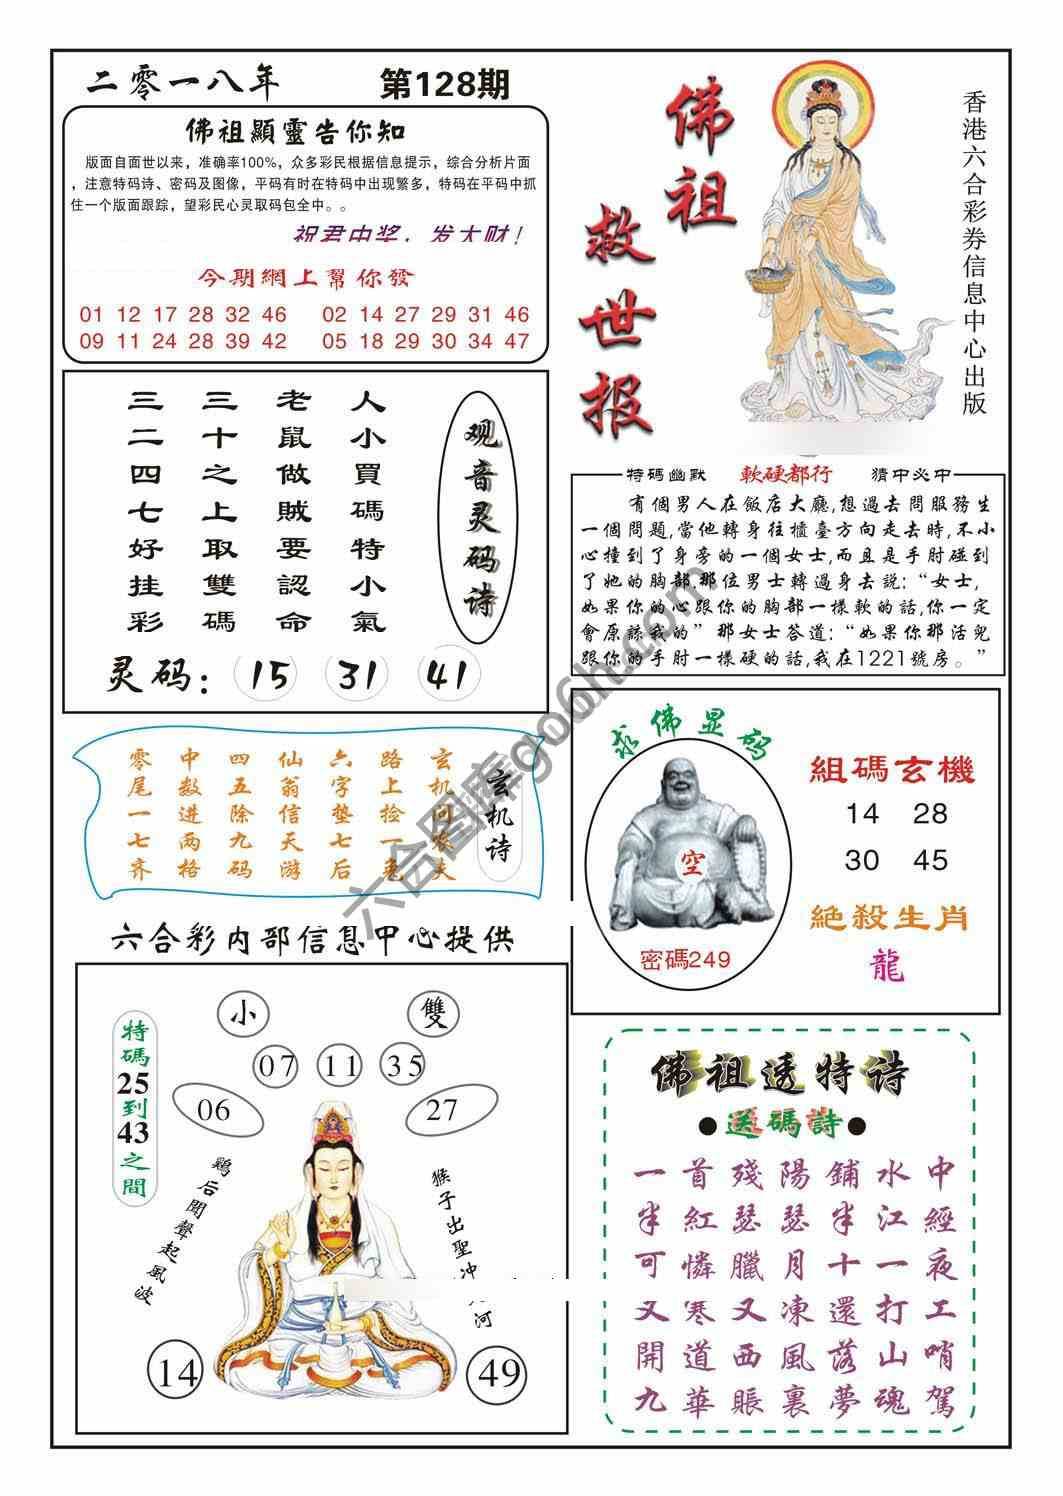 二零一八年
第128期
佛祖顯靈告你知
版面自面世以来，准确率100%，众多彩民根据信息提示，综合分析片面
，注意特码诗、密码及图像，平码有时在特码中出现繁多，特码在平码中抓
住一个版面跟踪，望彩民心灵取码包全中。。
祝君中奖，发大财！
今期網上幫你發
01 12 17 28 32 46　02 14 27 29 31 46
09 11 24 28 39 42　05 18 29 30 34 47
佛祖救世报
香港六合彩券信息中心出版
观音灵码诗
人小買碼特小氣
老鼠做贼要認命
三十之上取雙碼
三二四七好挂彩
灵码：15 31 41
特碼幽默 軟硬都行 猜中必中
有個男人在飯店大廳,想過去問服務生
一個問題,當他轉身往櫃臺方向走去時,不小
心撞到了身旁的一個女士,而且是手肘碰到
了她的胸部.那位男士轉過身去説:“女士,
如果你的心跟你的胸部一樣軟的話,你一定
會原諒我的”那女士答道:“如果你那活兒
跟你的手肘一樣硬的話,我在1221號房。”
玄机诗
玄机问农夫
路上捡一兔
六字垫七后
仙翁信天游
四五除九码
中数进两格
零尾一七齐
求佛显码
空
密碼249
組碼玄機
14 28
30 45
絕殺生肖
龍
六合彩内部信息中心提供
特碼25到43之間
小 雙
07 11 35
06 27
鷄后聞聲起風波
猴子出聖冲 河
14 49
佛祖透特诗
●送碼詩●
一首殘陽鋪水中
半紅瑟瑟半江經
可憐臘月十一夜
又寒又凍還打工
開道西風落山哨
九華賬裏夢魂駕
六合图库go6h.com